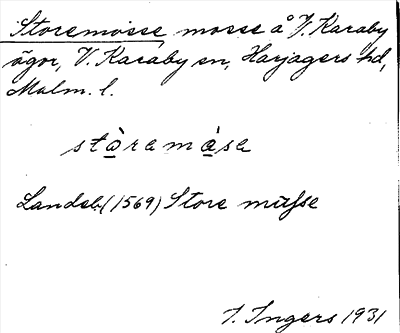 Storemosse mosse å V. Karaby
ägor, V. Karaby sn, Harjagers hd,
Malm. l.
stò̱ramȯ̱sa
Landeb. (1569) Store måsse
I. Ingers 1931